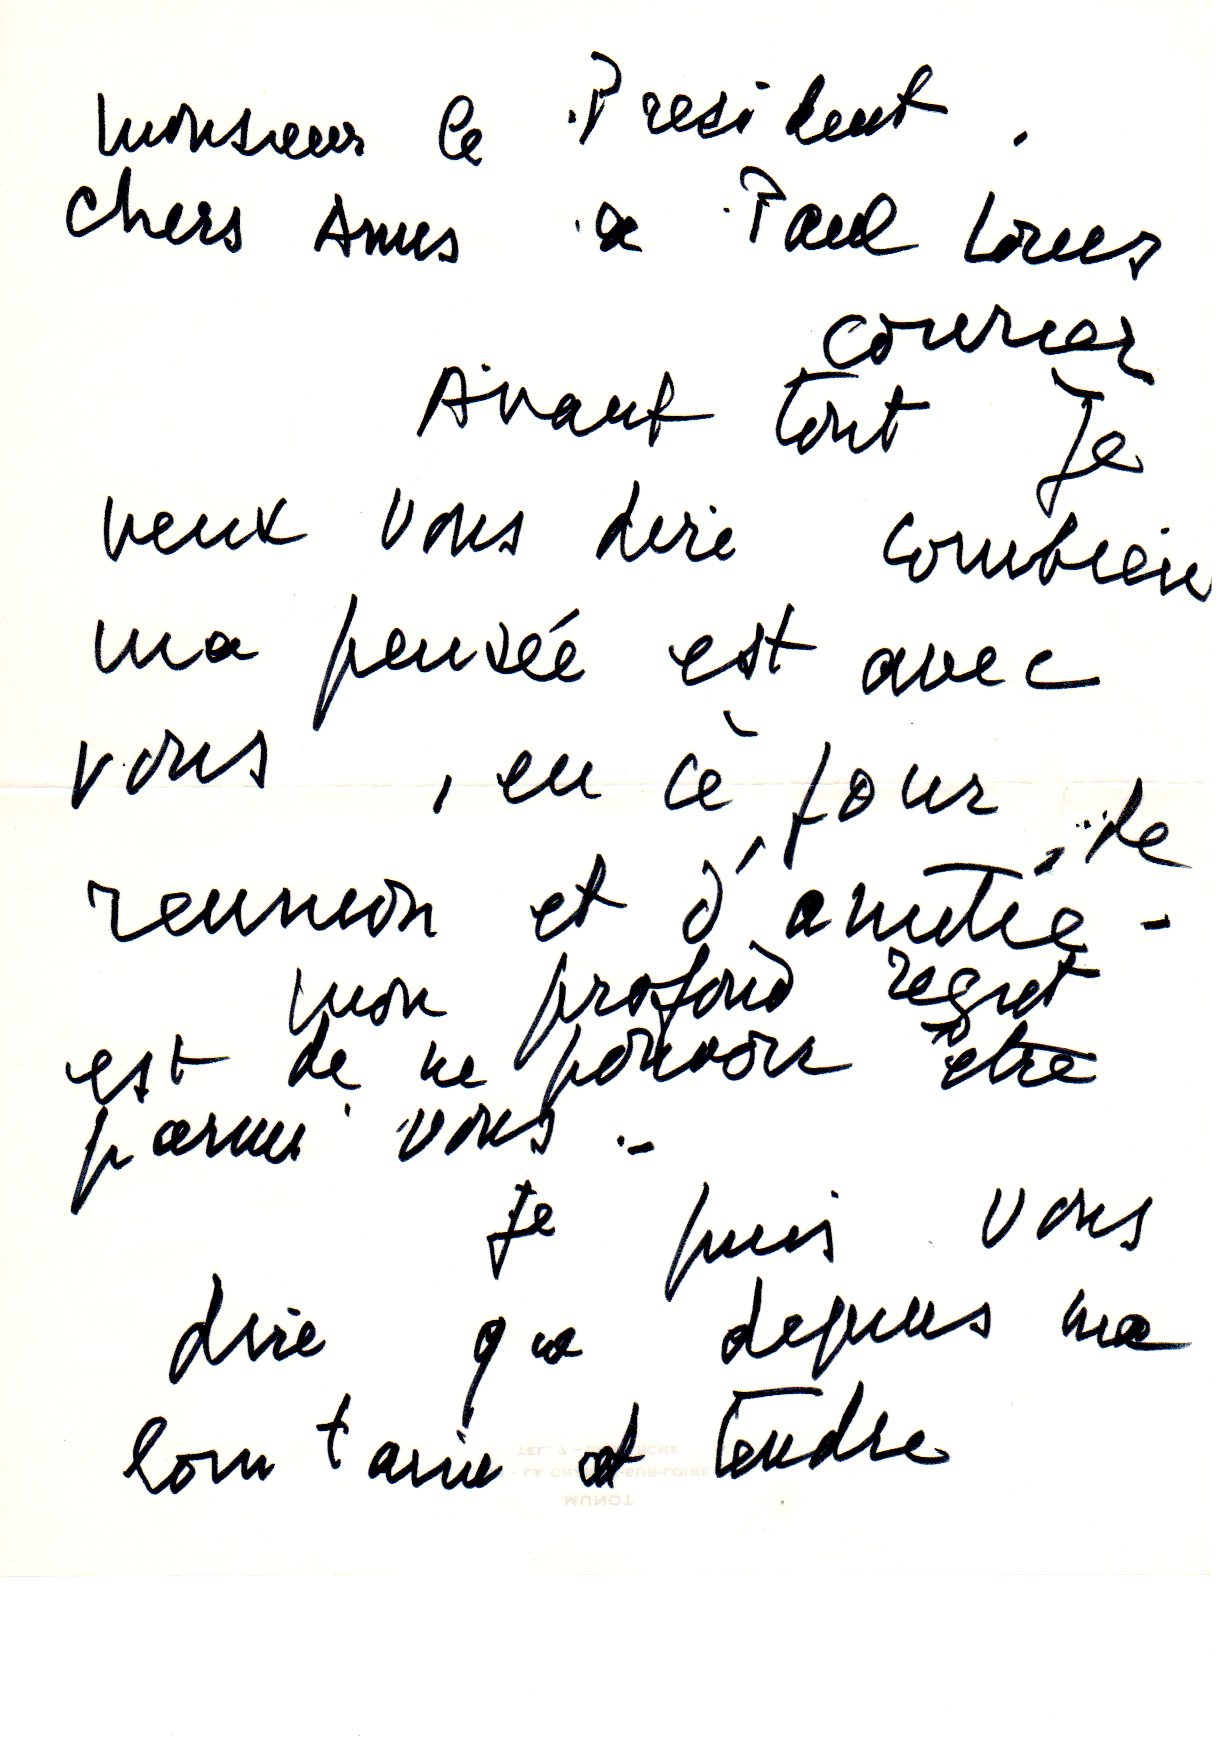 Monsieur le President.
Chers Amis de Paul Louis
Courier
Avant tout Je
veux vous dire combien
ma pensée est avec
vous, en ce jour de
reunion et d'amitié -
Mon profond regret
est de ne pouvoir être
parmi vous. -
Je puis vous
dire que depuis ma
lointaine et tendre